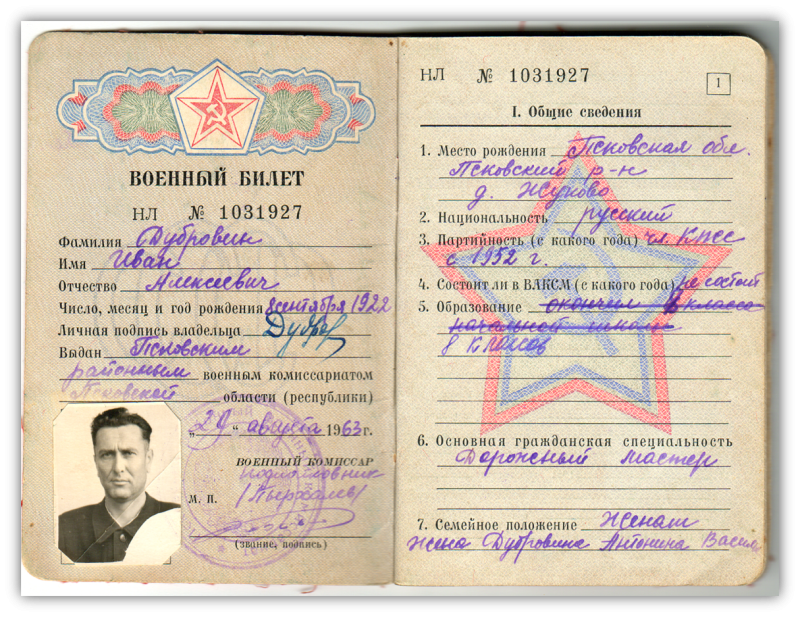 ВОЕННЫЙ БИЛЕТ
НЛ № 1031927
Фамилия Дубровин
Имя Иван
Отчество Алексеевич
Число, месяц и год рождения 8 сентября 1922
Личная подпись владельца
Выдан Псковским
районным военным комиссариатом
Псковской области (республики)
„29“ августа 1963 г.
ВОЕННЫЙ КОМИССАР
подполковник
М. П.
(звание, подпись)
НЛ № 1031927
1
I. Общие сведения
1. Место рождения Псковская обл.
Псковский р-н
д. Жуково
2. Национальность русский
3. Партийность (с какого года) чл. КПСС
с 1952 г.
4. Состоит ли в ВЛКСМ (с какого года) не состоит
5. Образование окончил 8 класса
начальной школы
8 классов
6. Основная гражданская специальность
Дорожный мастер
7. Семейное положение женат
жена Дубровина Антонина Васил